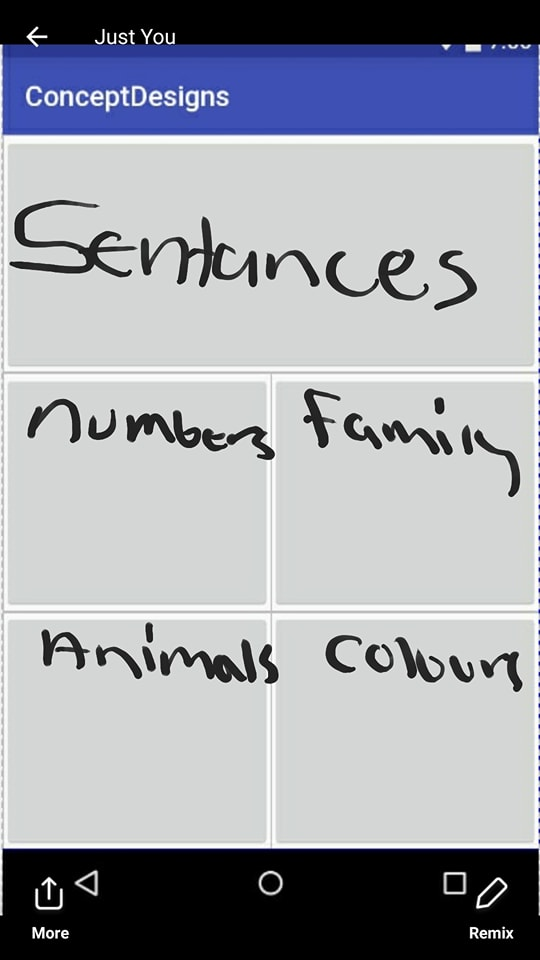 Just You
ConceptDesigns
Sentances
numbers
Family
Animals
Colours
More
Remix